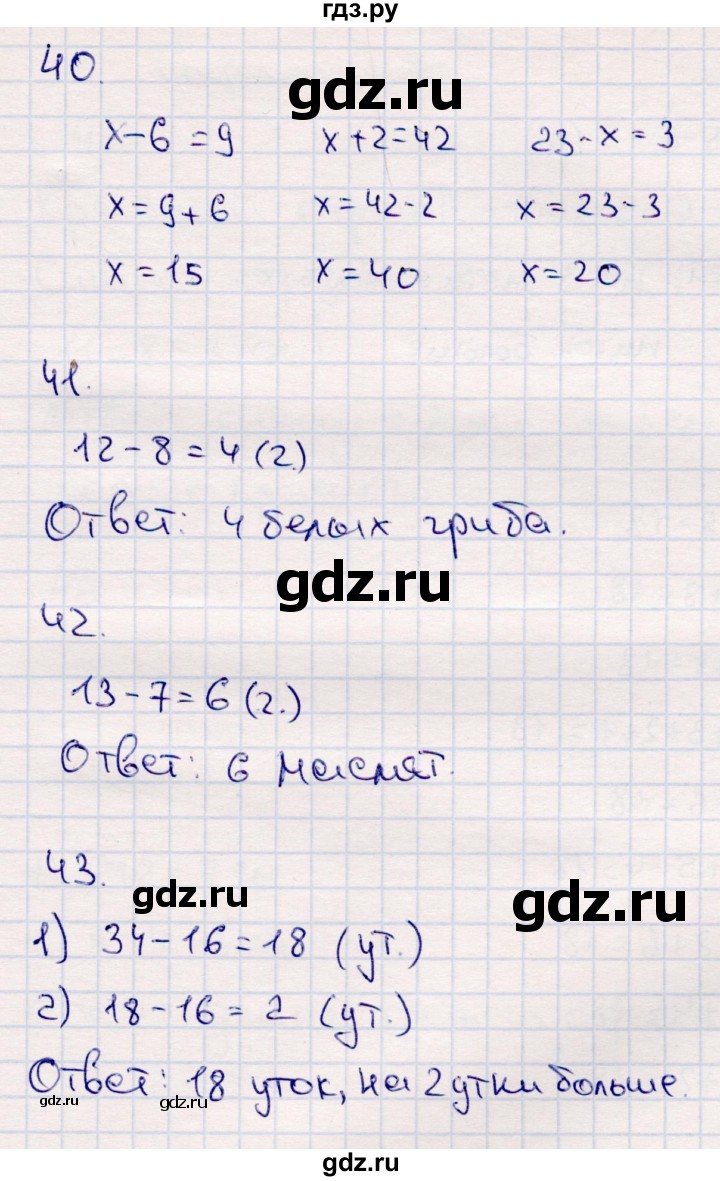 гдз.ру
40.
gdz.ru
x-6=9 x+2=42 23-x=3
x=9+6 x=42-2 x=23-3
x=15 x=40 x=20
41.
12-8=4(г.)
Ответ: 4 белых гриба.
gdz.ru
42.
13-7=6(г.)
Ответ: 6 маслят.
43.
gdz.ru gdz.ru
1) 34-16=18 (ут.)
2) 18-16=2 (ут.)
Ответ: 18 уток, на 2 утки больше.
gdz.ru gdz.ru
gdz.ru